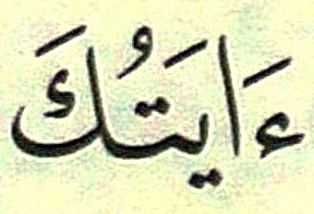 ءَايَتُكَ